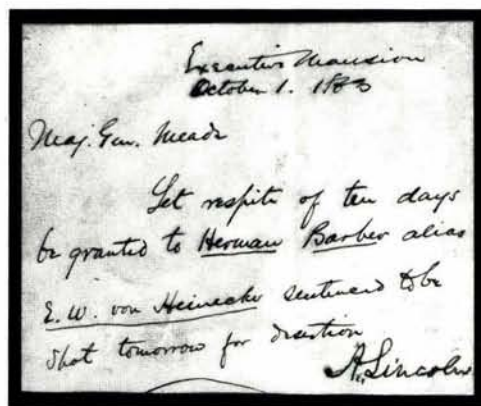 Executive Mansion
October 1. 1863
Maj. Gen. Meade
Let respite of ten days
be granted to Herman Barber alias
E. W. von Heinecke sentenced to be
shot tomorrow for desertion
A. Lincoln